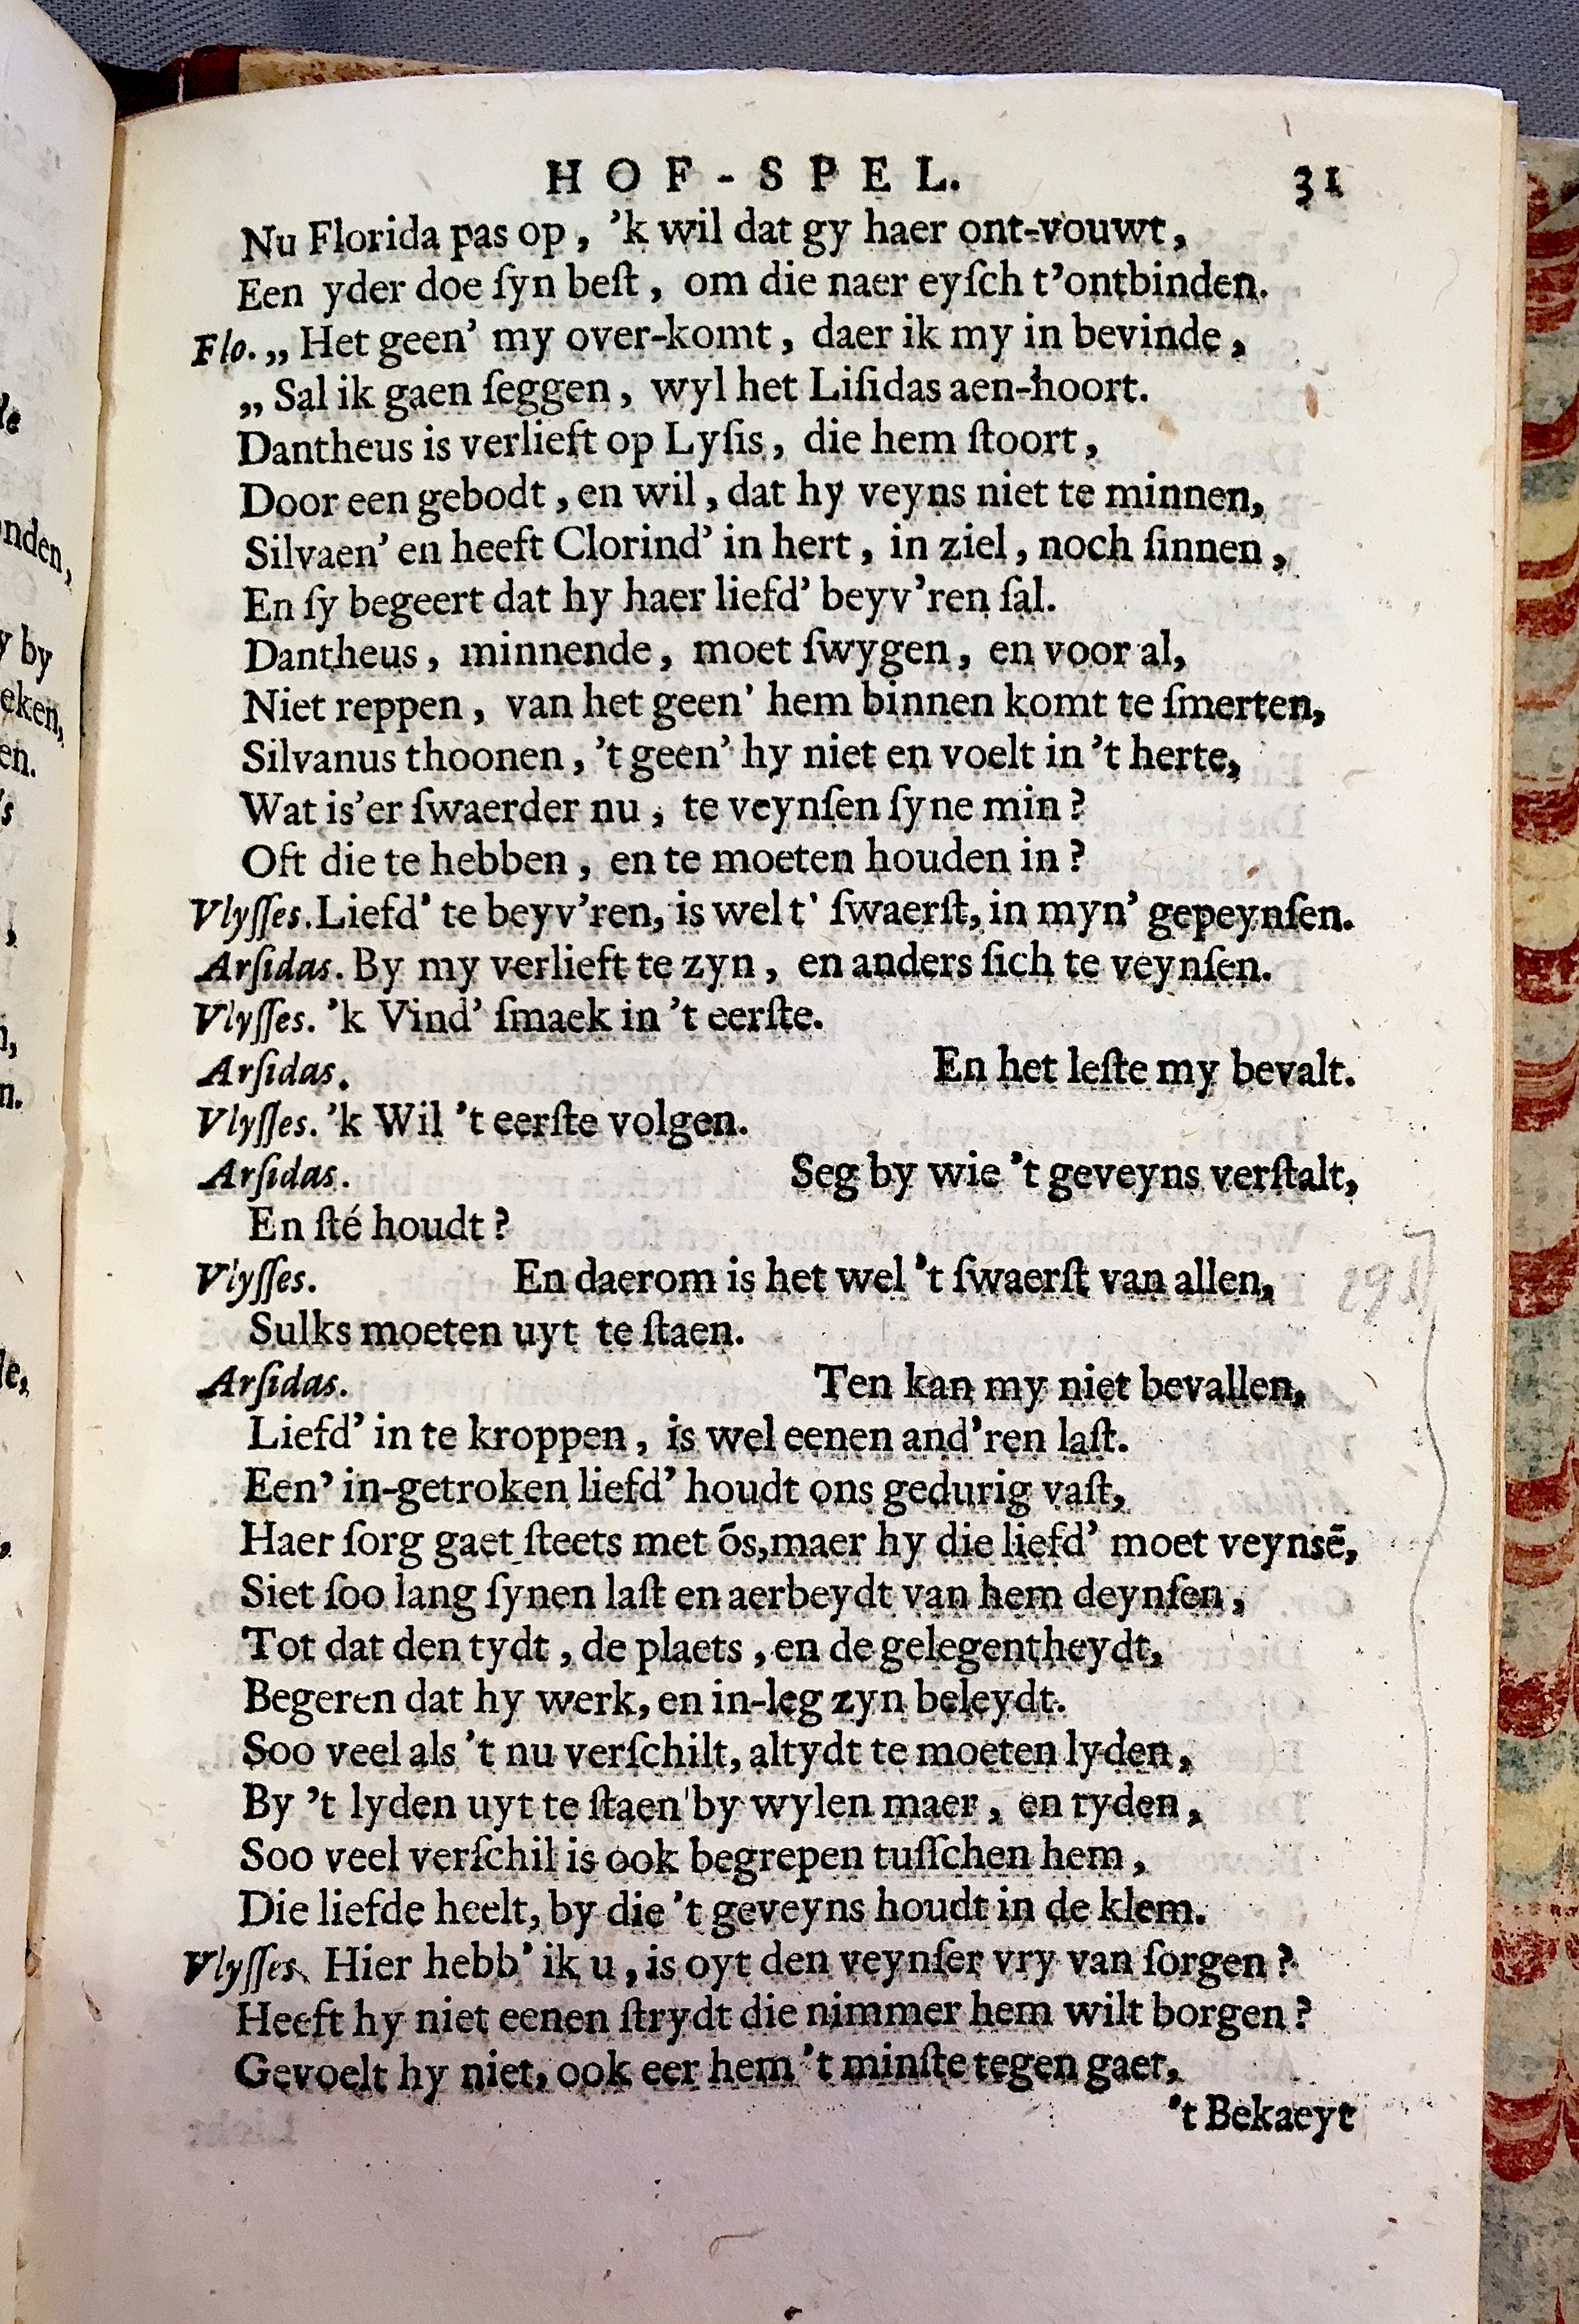 HOF-SPEL. 31
Nu Florida pas op, 'k wil dat gy haer ont-vouwt,
Een yder doe ſyn beſt, om die naer eyſch t'ontbinden.
Flo. „ Het geen' my over-komt, daer ik my in bevinde,
„ Sal ik gaen ſeggen, wyl het Liſidas aen-hoort.
Dantheus is verlieft op Lyſis, die hem ſtoort,
Door een gebodt, en wil, dat hy veyns niet te minnen,
Silvaen' en heeft Clorind' in hert, in ziel, noch ſinnen,
En ſy begeert dat hy haer liefd' beyv'ren ſal.
Dantheus, minnende, moet ſwygen, en voor al,
Niet reppen, van het geen' hem binnen komt te ſmerten,
Silvanus thoonen, 't geen' hy niet en voelt in 't herte,
Wat is'er ſwaerder nu, te veynſen ſyne min?
Oft die te hebben, en te moeten houden in?
Vlyſſes. Liefd' te beyv'ren, is wel t' ſwaerſt, in myn' gepeynſen.
Arſidas. By my verlieft te zyn, en anders ſich te veynſen.
Vlyſſes. 'k Vind' ſmaek in 't eerſte.
Arſidas. En het leſte my bevalt.
Vlyſſes. 'k Wil 't eerſte volgen.
Arſidas. Seg by wie 't geveyns verſtalt,
En ſté houdt?
Vlyſſes. En daerom is het wel 't ſwaerſt van allen,
Sulks moeten uyt te ſtaen.
Arſidas. Ten kan my niet bevallen,
Liefd' in te kroppen, is wel eenen and'ren laſt.
Een' in-getroken liefd' houdt ons gedurig vaſt,
Haer ſorg gaet ſteets met õs, maer hy die liefd' moet veynsẽ,
Siet ſoo lang ſynen laſt en aerbeydt van hem deynſen,
Tot dat den tydt, de plaets, en de gelegentheydt,
Begeren dat hy werk, en in-leg zyn beleydt.
Soo veel als 't nu verſchilt, altydt te moeten lyden,
By 't lyden uyt te ſtaen by wylen maer, en tyden,
Soo veel verſchil is ook begrepen tuſſchen hem,
Die liefde heelt, by die 't geveyns houdt in de klem.
Vlyſſes. Hier hebb' ik u, is oyt den veynſer vry van ſorgen?
Heeft hy niet eenen ſtrydt die nimmer hem wilt borgen?
Gevoelt hy niet, ook eer hem 't minſte tegen gaet,
't Bekaeyt